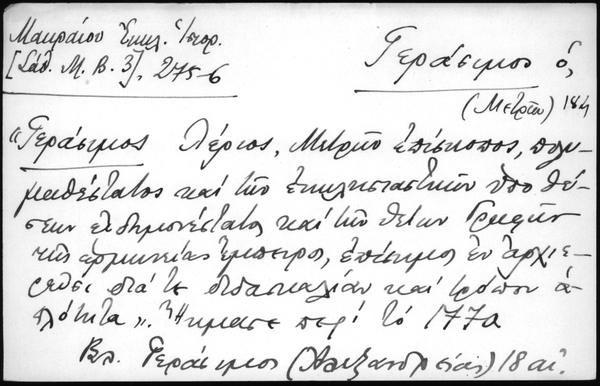 Μακραίου Ἐκκλ. Ἱστορ.
[Σάθ. Μ. Β. 3], 275-6
Γεράσιμος ὁ,
(Μετρῶν) 184
"Γεράσιμος Λέριος, Μετρῶν ἐπίσκοπος, πολυ-
μαθέστατος καὶ τῶν ἐκκλησιαστικῶν ὑποθέ-
σεων εἰδημονέστατος καὶ τῶν θείων Γραφῶν
τῆς ἑρμηνείας ἔμπειρος, ἐπίσημος ἐν ἀρχιε-
ρεῦσι διά τε διδασκαλίαν καὶ τρόπων ἁ-
πλότητα". Ἤκμασε περὶ τὸ 1770
Βλ. Γεράσιμος (Ἀλεξανδρείας) 18 αἰ.